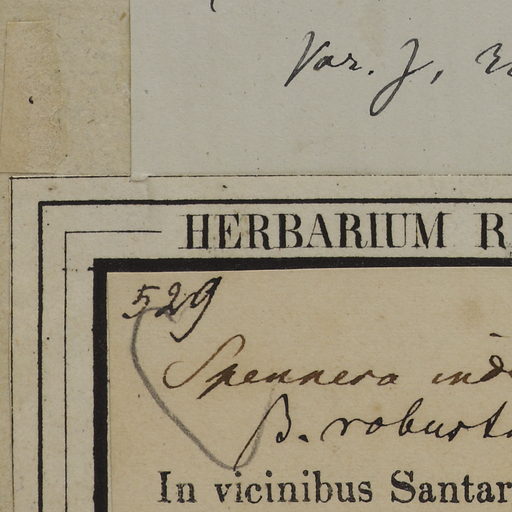 Var. J,
HERBARIUM R
529
Spennera ind
β. robusta
In vicinibus Santar